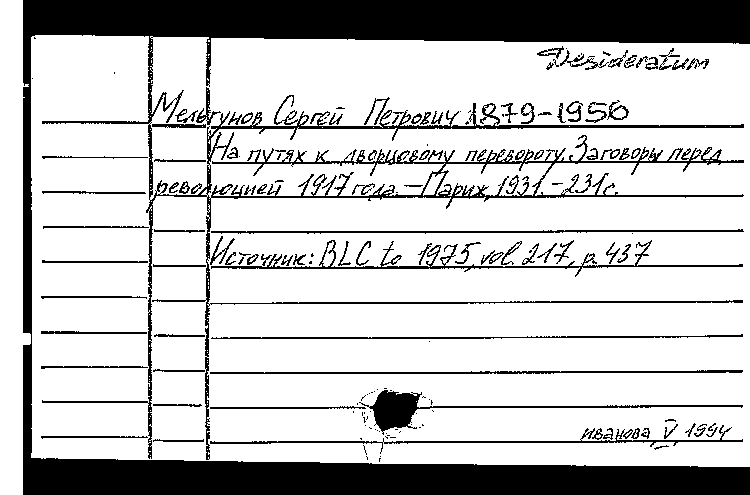 Desideratum
Мельгунов, Сергей Петрович 1879-1956
На путях к дворцовому перевороту. Заговоры перед
революцией 1917 года. — Париж, 1931. - 231 с.
Источник: BLC to 1975, vol. 217, p. 437
иванова, V, 1994